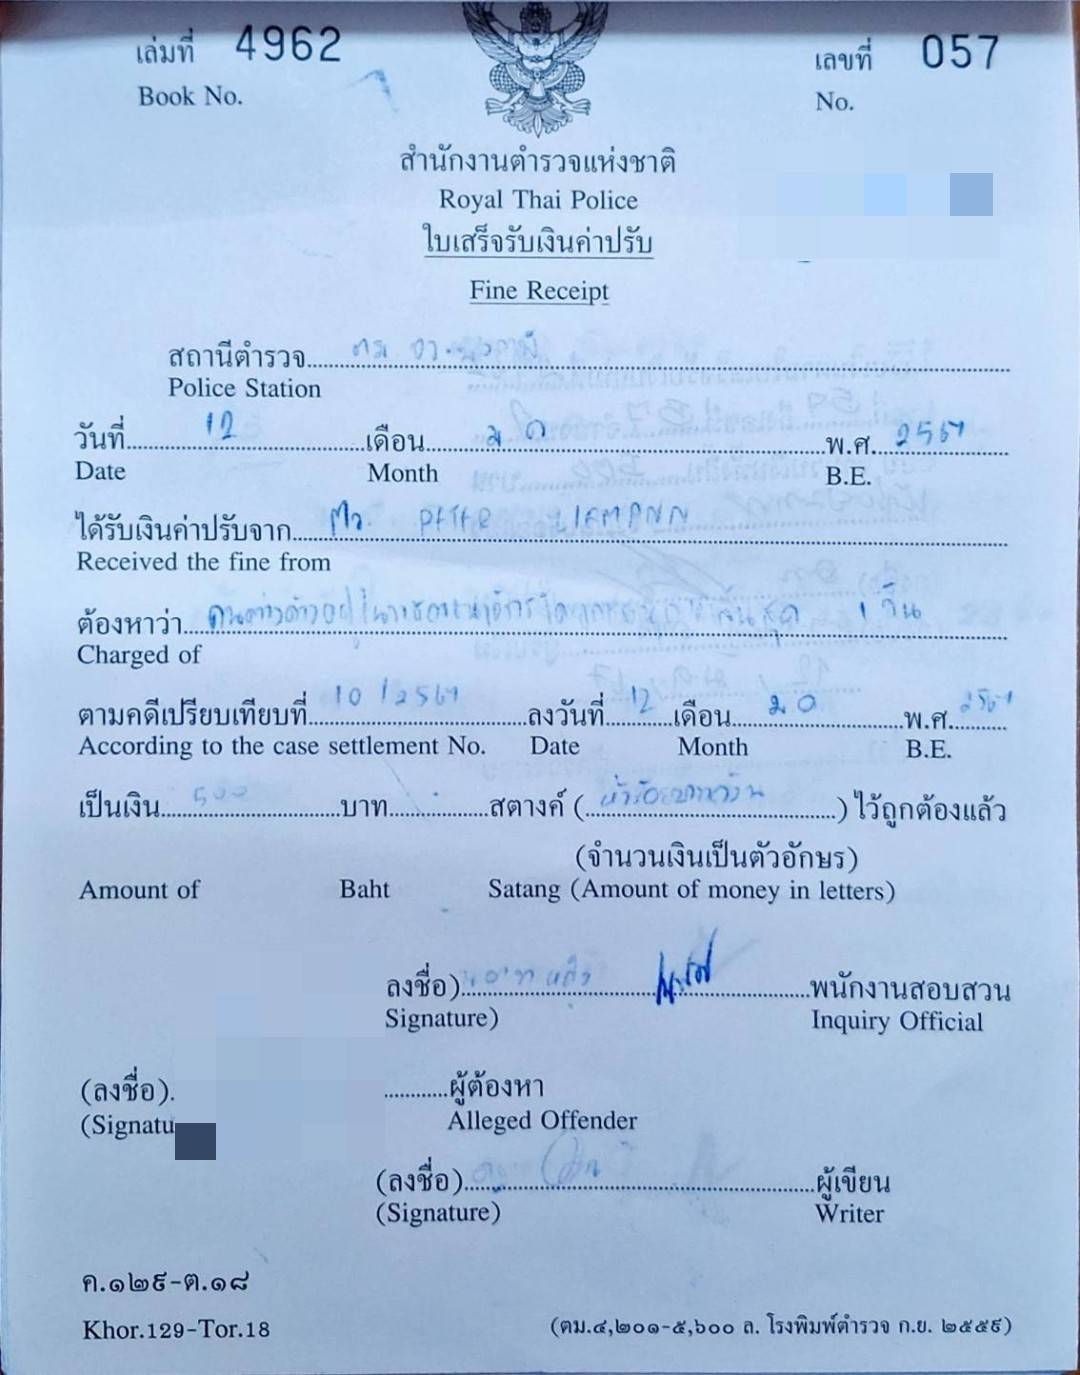 เล่มที่ 4962 เลขที่ 057
Book No. No.
สำนักงานตำรวจแห่งชาติ
Royal Thai Police
ใบเสร็จรับเงินค่าปรับ
Fine Receipt
สถานีตำรวจ
Police Station
วันที่ 12 เดือน พ.ศ.
Date Month B.E.
ได้รับเงินค่าปรับจาก Mr. PETER
Received the fine from
ต้องหาว่า 1 วัน
Charged of
ตามคดีเปรียบเทียบที่ ลงวันที่ 12 เดือน พ.ศ.
According to the case settlement No. Date Month B.E.
เป็นเงิน 500 บาท สตางค์ (ห้าร้อยบาทถ้วน) ไว้ถูกต้องแล้ว
(จำนวนเงินเป็นตัวอักษร)
Amount of Baht Satang (Amount of money in letters)
ลงชื่อ) พนักงานสอบสวน
Signature) Inquiry Official
(ลงชื่อ) ผู้ต้องหา
(Signatu Alleged Offender
(ลงชื่อ) ผู้เขียน
(Signature) Writer
ค.๑๒๙-ต.๑๘
Khor.129-Tor.18 (ตม.๔,๒๐๑-๕,๖๐๐ ล. โรงพิมพ์ตำรวจ ก.ย. ๒๕๕๙)